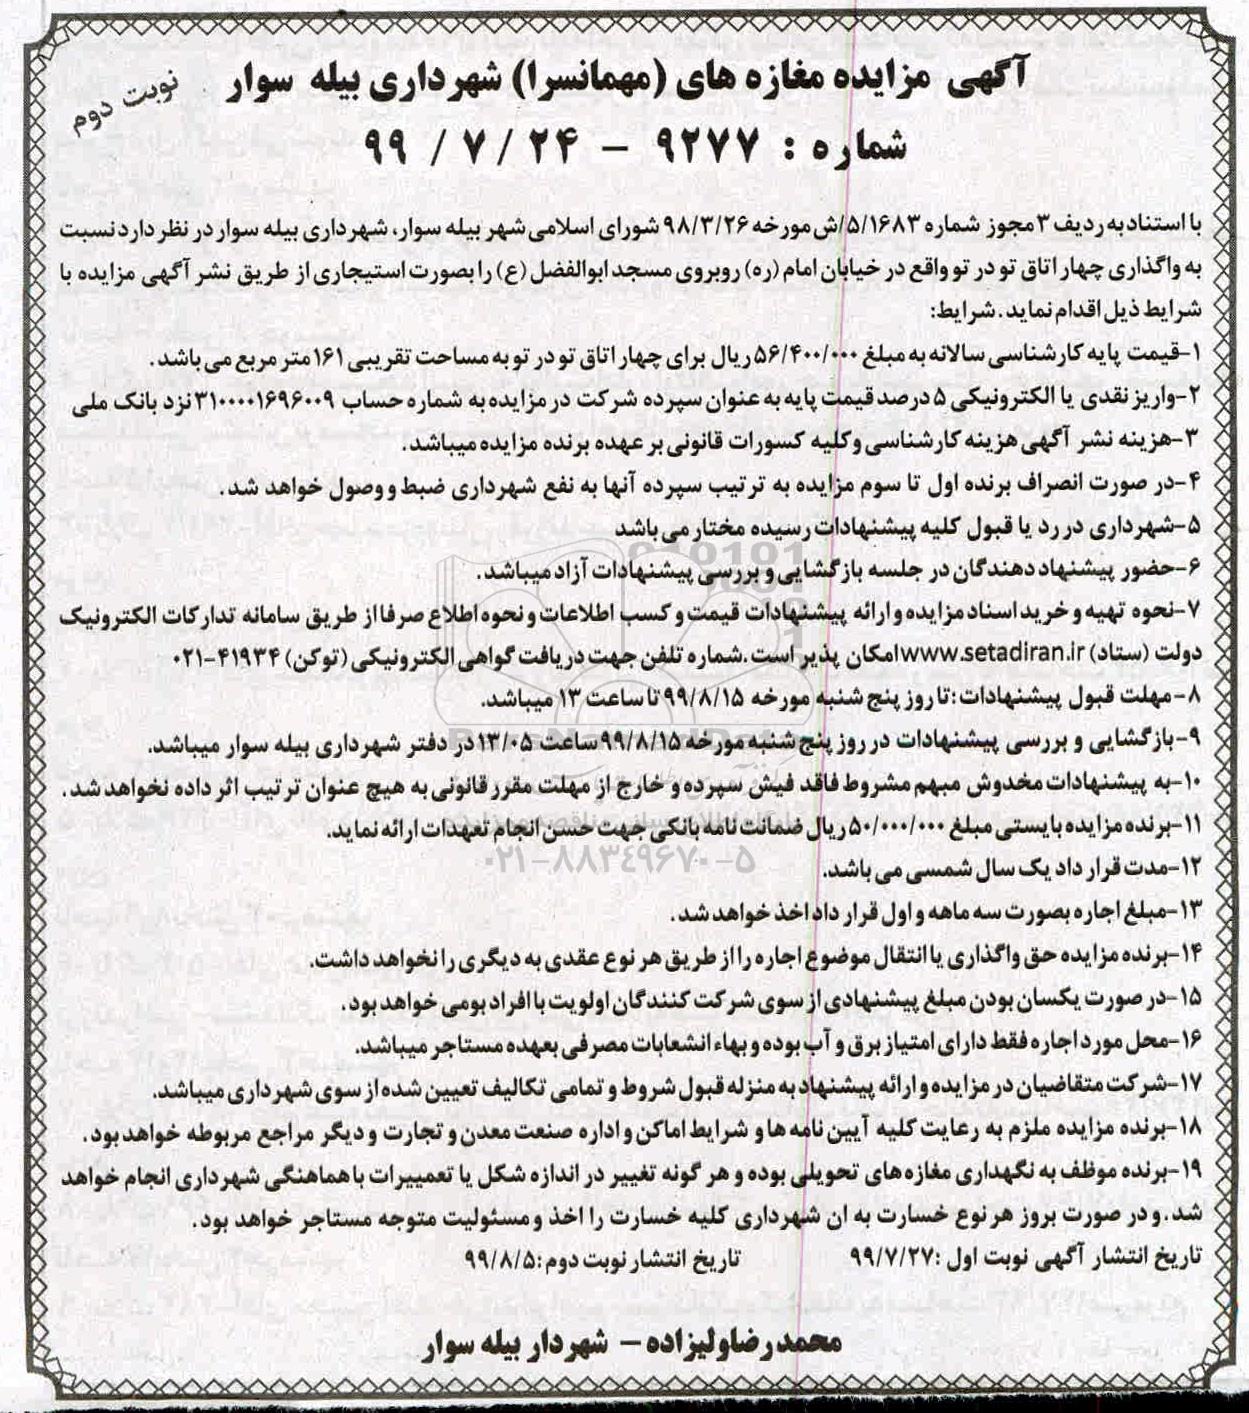 آگهی مزایده مغازه های (مهمانسرا) شهرداری بیله سوار
نوبت دوم
شماره : ۹۲۷۷ – ۲۴ / ۷ / ۹۹
با استناد به ردیف ۳ مجوز شماره ۵/۱۶۸۳/ش مورخه ۹۸/۳/۲۶ شورای اسلامی شهر بیله سوار، شهرداری بیله سوار در نظر دارد نسبت
به واگذاری چهار اتاق تو در تو واقع در خیابان امام (ره) روبروی مسجد ابوالفضل (ع) را بصورت استیجاری از طریق نشر آگهی مزایده با
شرایط ذیل اقدام نماید. شرایط:
۱-قیمت پایه کارشناسی سالانه به مبلغ ۵۶/۴۰۰/۰۰۰ ریال برای چهار اتاق تو در تو به مساحت تقریبی ۱۶۱ متر مربع می باشد.
۲-واریز نقدی یا الکترونیکی ۵ درصد قیمت پایه به عنوان سپرده شرکت در مزایده به شماره حساب ۳۱۰۰۰۰۱۶۹۶۰۰۹ نزد بانک ملی
۳-هزینه نشر آگهی هزینه کارشناسی و کلیه کسورات قانونی بر عهده برنده مزایده میباشد.
۴-در صورت انصراف برنده اول تا سوم مزایده به ترتیب سپرده آنها به نفع شهرداری ضبط و وصول خواهد شد.
۵-شهرداری در رد یا قبول کلیه پیشنهادات رسیده مختار می باشد
۶-حضور پیشنهاد دهندگان در جلسه بازگشایی و بررسی پیشنهادات آزاد میباشد.
۷-نحوه تهیه و خرید اسناد مزایده و ارائه پیشنهادات قیمت و کسب اطلاعات و نحوه اطلاع صرفا از طریق سامانه تدارکات الکترونیک
دولت (ستاد) www.setadiran.ir امکان پذیر است. شماره تلفن جهت دریافت گواهی الکترونیکی (توکن) ۴۱۹۳۴-۰۲۱
۸-مهلت قبول پیشنهادات: تا روز پنج شنبه مورخه ۹۹/۸/۱۵ تا ساعت ۱۳ میباشد.
۹-بازگشایی و بررسی پیشنهادات در روز پنج شنبه مورخه ۹۹/۸/۱۵ ساعت ۱۳/۰۵ در دفتر شهرداری بیله سوار میباشد.
۱۰-به پیشنهادات مخدوش مبهم مشروط فاقد فیش سپرده و خارج از مهلت مقرر قانونی به هیچ عنوان ترتیب اثر داده نخواهد شد.
۱۱-برنده مزایده بایستی مبلغ ۵۰/۰۰۰/۰۰۰ ریال ضمانت نامه بانکی جهت حسن انجام تعهدات ارائه نماید.
۰۲۱-۸۸۳۴۹۶۷۰-۵
۱۲-مدت قرار داد یک سال شمسی می باشد.
۱۳-مبلغ اجاره بصورت سه ماهه و اول قرار داد اخذ خواهد شد.
۱۴-برنده مزایده حق واگذاری یا انتقال موضوع اجاره را از طریق هر نوع عقدی به دیگری را نخواهد داشت.
۱۵-در صورت یکسان بودن مبلغ پیشنهادی از سوی شرکت کنندگان اولویت با افراد بومی خواهد بود.
۱۶-محل مورد اجاره فقط دارای امتیاز برق و آب بوده و بهاء انشعابات مصرفی بعهده مستاجر میباشد.
۱۷-شرکت متقاضیان در مزایده و ارائه پیشنهاد به منزله قبول شروط و تمامی تکالیف تعیین شده از سوی شهرداری میباشد.
۱۸-برنده مزایده ملزم به رعایت کلیه آیین نامه ها و شرایط اماکن و اداره صنعت معدن و تجارت و دیگر مراجع مربوطه خواهد بود.
۱۹-برنده موظف به نگهداری مغازه های تحویلی بوده و هر گونه تغییر در اندازه شکل یا تعمییرات با هماهنگی شهرداری انجام خواهد
شد. و در صورت بروز هر نوع خسارت به ان شهرداری کلیه خسارت را اخذ و مسئولیت متوجه مستاجر خواهد بود.
تاریخ انتشار آگهی نوبت اول :۹۹/۷/۲۷ تاریخ انتشار نوبت دوم:۹۹/۸/۵
محمدرضا ولیزاده – شهردار بیله سوار